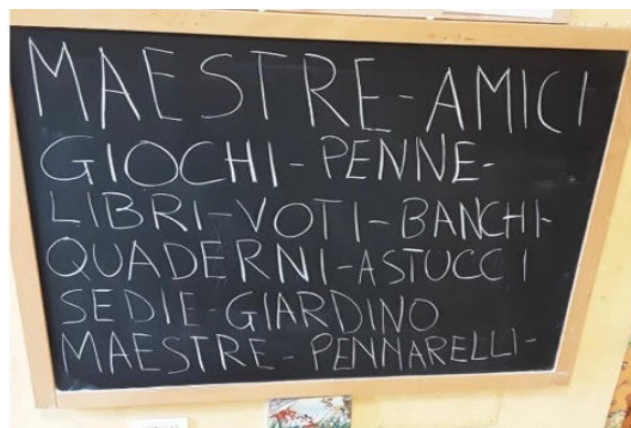 MAESTRE-AMICI
GIOCHI-PENNE-
LIBRI-VOTI-BANCHI-
QUADERNI-ASTUCCI
SEDIE-GIARDINO
MAESTRE-PENNARELLI-